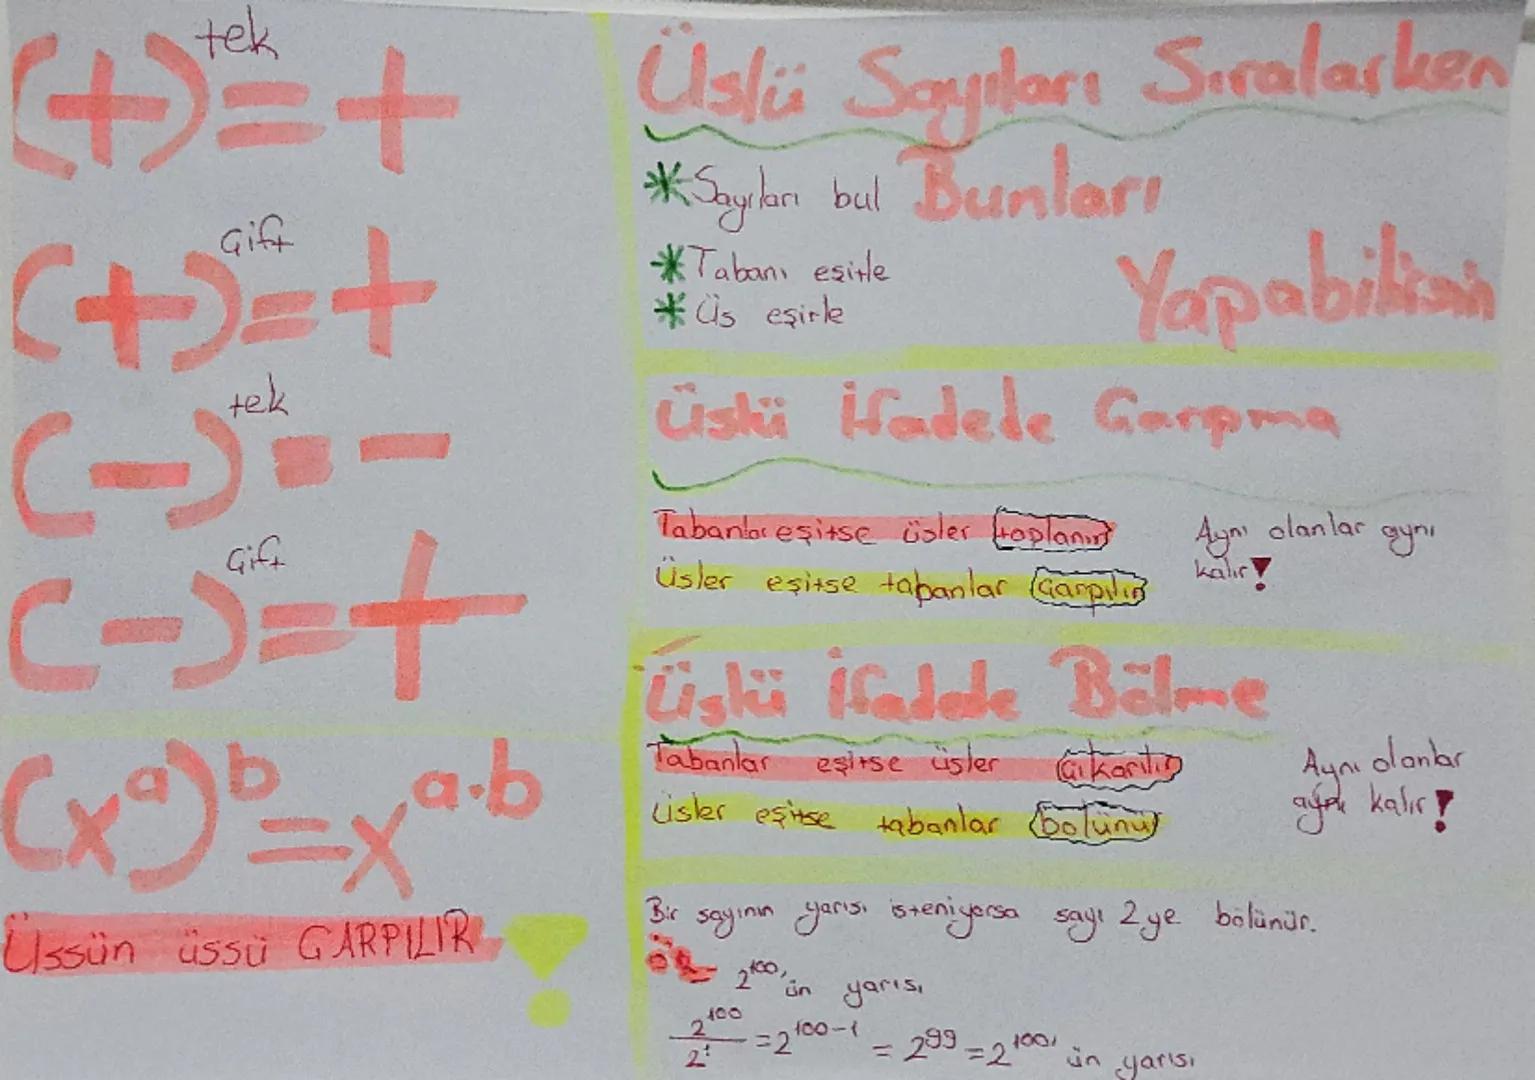 (+)^tek = +
(+)^Çift = +
(-)^tek = -
(-)^Çift = +
(x^a)^b = x^a.b
Üssün üssü ÇARPILIR!
Üslü Sayıları Sıralarken
Bunları
Yapabilirsin
* Sayıları bul
* Tabanı eşitle
* Üs eşitle
Üslü İfadede Çarpma
Tabanlar eşitse üsler toplanır
Üsler eşitse tabanlar Çarpılır
Aynı olanlar aynı
kalır!
Üslü İfadede Bölme
Tabanlar eşitse üsler Çıkarılır
üsler eşitse tabanlar bölünür
Aynı olanlar
aynı kalır!
Bir sayının yarısı isteniyorsa sayı 2ye bölünür.
ÖR 2^100'ün yarısı
2^100/2^1 = 2^100-1 = 2^99 = 2^100'ün yarısı